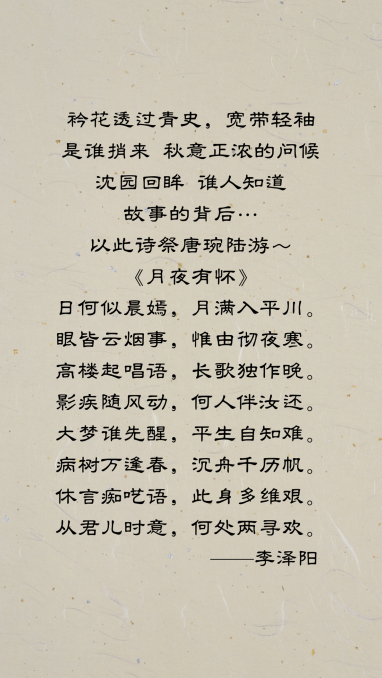 衿花透过青史，宽带轻袖
是谁捎来 秋意正浓的问候
沈园回眸 谁人知道
故事的背后…
以此诗祭唐琬陆游～
《月夜有怀》
日何似晨嫣，月满入平川。
眼皆云烟事，惟由彻夜寒。
高楼起唱语，长歌独作晚。
影疾随风动，何人伴汝还。
大梦谁先醒，平生自知难。
病树万逢春，沉舟千历帆。
休言痴呓语，此身多维艰。
从君儿时意，何处两寻欢。
——李泽阳